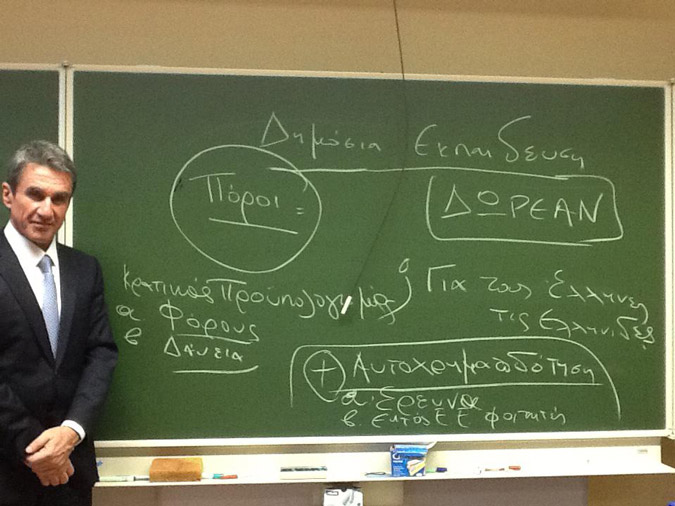 Δημόσια Εκπαίδευση
Πόροι =
ΔΩΡΕΑΝ
Κρατικός Προϋπολογισμός
α Φόρους
β Δάνεια
Για τους Έλληνες
τις Ελληνίδες
+ Αυτοχρηματοδότηση
α. Έρευνα
β. εκτός Ε Ε φοιτητή